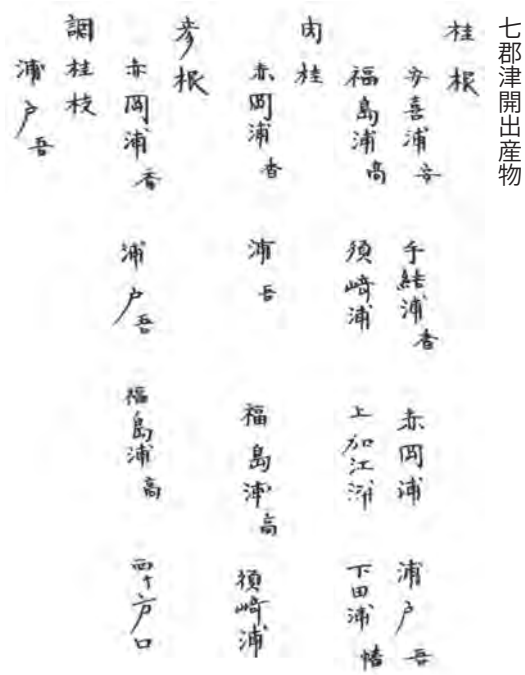 七郡津開出産物
桂根
安喜浦安 手結浦香 赤岡浦 浦戸吾
福島浦高 須崎浦 上加江浦 下田浦幡
肉桂
赤岡浦香 浦吾 福島浦高 須崎浦
彦根
赤岡浦香 浦戸吾 福島浦高 四十方口
調桂枝
浦戸吾